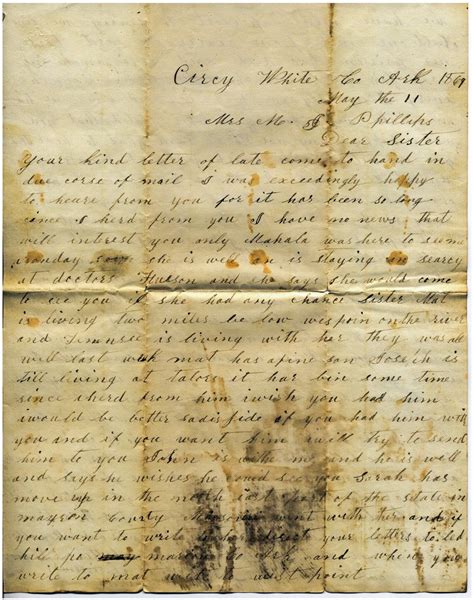 Circy White Co Ark 1861
May the 11
Mrs M. Phillips
Dear Sister
Your kind letter of late come to hand in
due corse of mail I was exceedingly happy
to heare from you for it has been so long
since I herd from you I have no news that
will interest you only Mahala was here to see me
she is well an is staying in searcy
at doctors and she says she would come
to see you if she had any chance Sister Mat
is living two miles be low wespoin on the river
and is living with her they was all
well last week mat has a fine son Joseph is
still living at it has bin some time
since iherd from him iwish you had him
iwould be better sadisfide if you had him with
you and if you want him iwill try to send
him to you John is with me and he is well
and says he wishes he could see you Sarah has
move up in the north east part of the state in
County went with her and if
you want to write to direct your letters to
hill po Ark and when you
write to mat write to west point